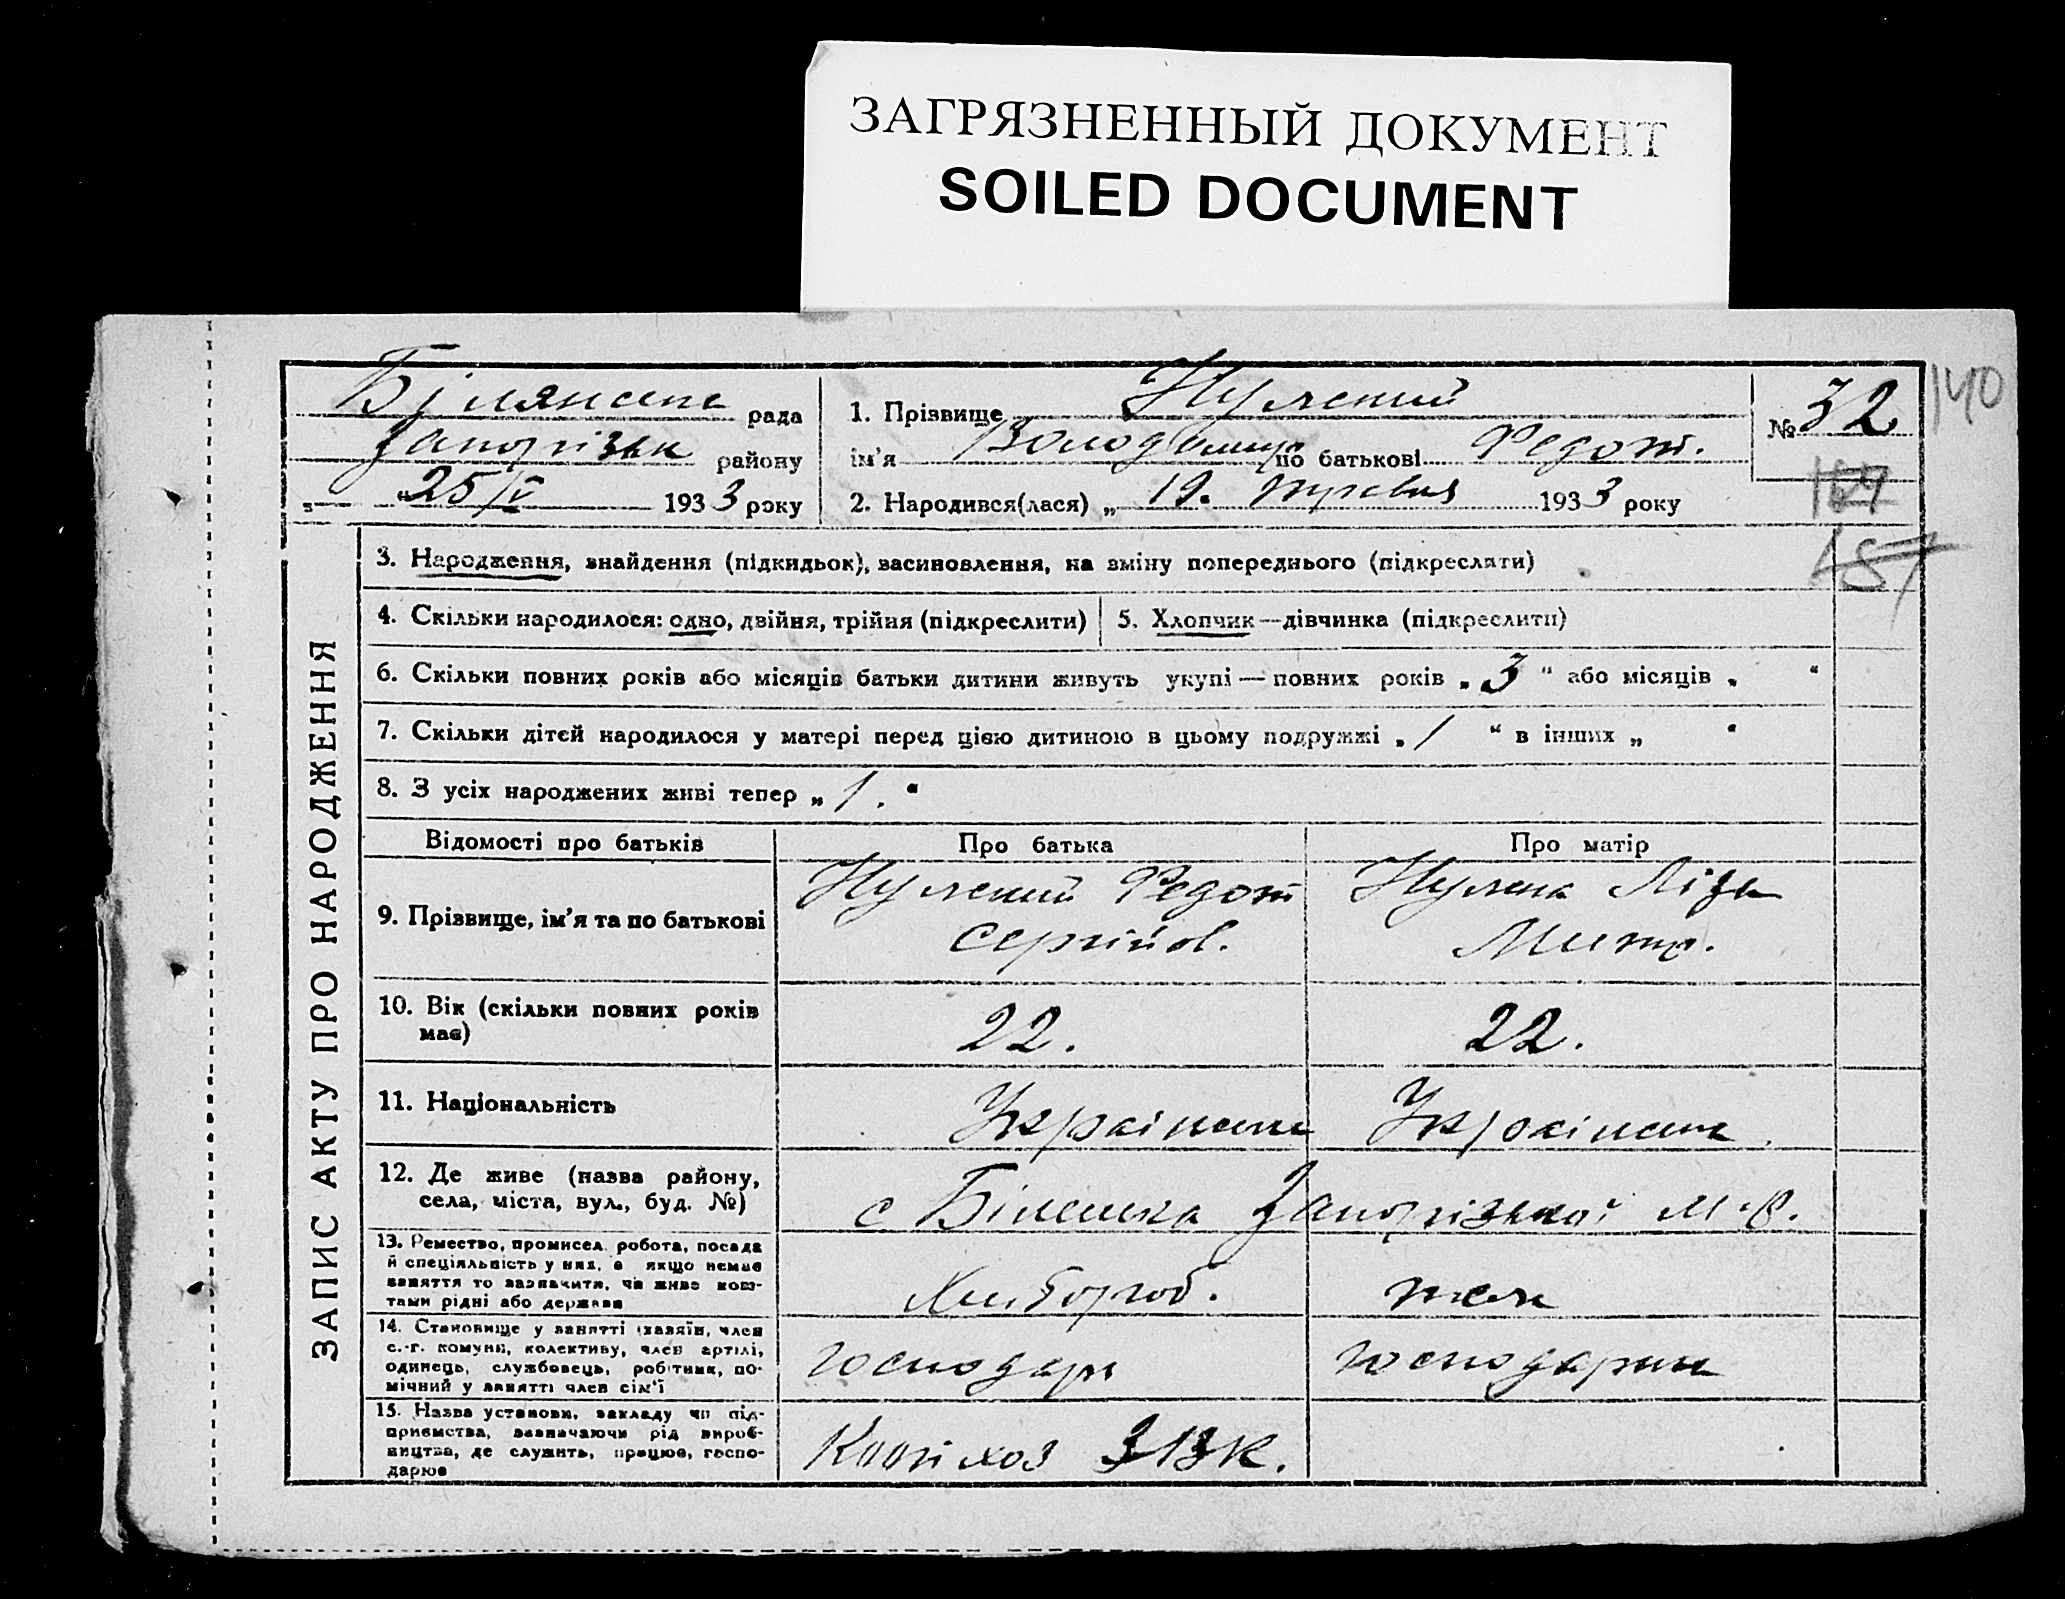 ЗАГРЯЗНЕННЫЙ ДОКУМЕНТ
SOILED DOCUMENT
140
рада
Запорізьк району
„ 25/V 1933 року
1. Прізвище
ім'я Володимир по батькові Федот.
2. Народився(лася) „ 19. травня 1933 року
№ 32
ЗАПИС АКТУ ПРО НАРОДЖЕННЯ
3. Народження, знайдення (підкидьок), засиновлення, на зміну попереднього (підкреслити)
4. Скільки народилося: одно, двійня, трійня (підкреслити)
5. Хлопчик—дівчинка (підкреслити)
6. Скільки повних років або місяців батьки дитини живуть укупі — повних років „ 3 “ або місяців „ “
7. Скільки дітей народилося у матері перед цією дитиною в цьому подружжі „ 1 “ в інших „ “
8. З усіх народжених живі тепер „ 1. “
Відомості про батьків
Про батька
Про матір
9. Прізвище, ім'я та по батькові
Федот
Сергійов.
Ліза
Митр.
10. Вік (скільки повних років
має)
22.
22.
11. Національність
Українець
Українка
12. Де живе (назва району,
села, міста, вул., буд. №)
с Біленька Запорізької м.р.
13. Ремество, промисел, робота, посада
й спеціяльність у них, а якщо немає
заняття то зазначити, чи живе кош-
тами рідні або держави
Хлібороб.
теж
14. Становище у занятті (хазяїн, член
с.-г. комуни, колективу, член артілі,
одинець, службовець, робітник, по-
мічний у занятті член сім'ї
господарь
господарка
15. Назва установи, закладу чи під-
приємства, зазначаючи рід вироб-
ництва, де служить, працює, госпо-
дарює